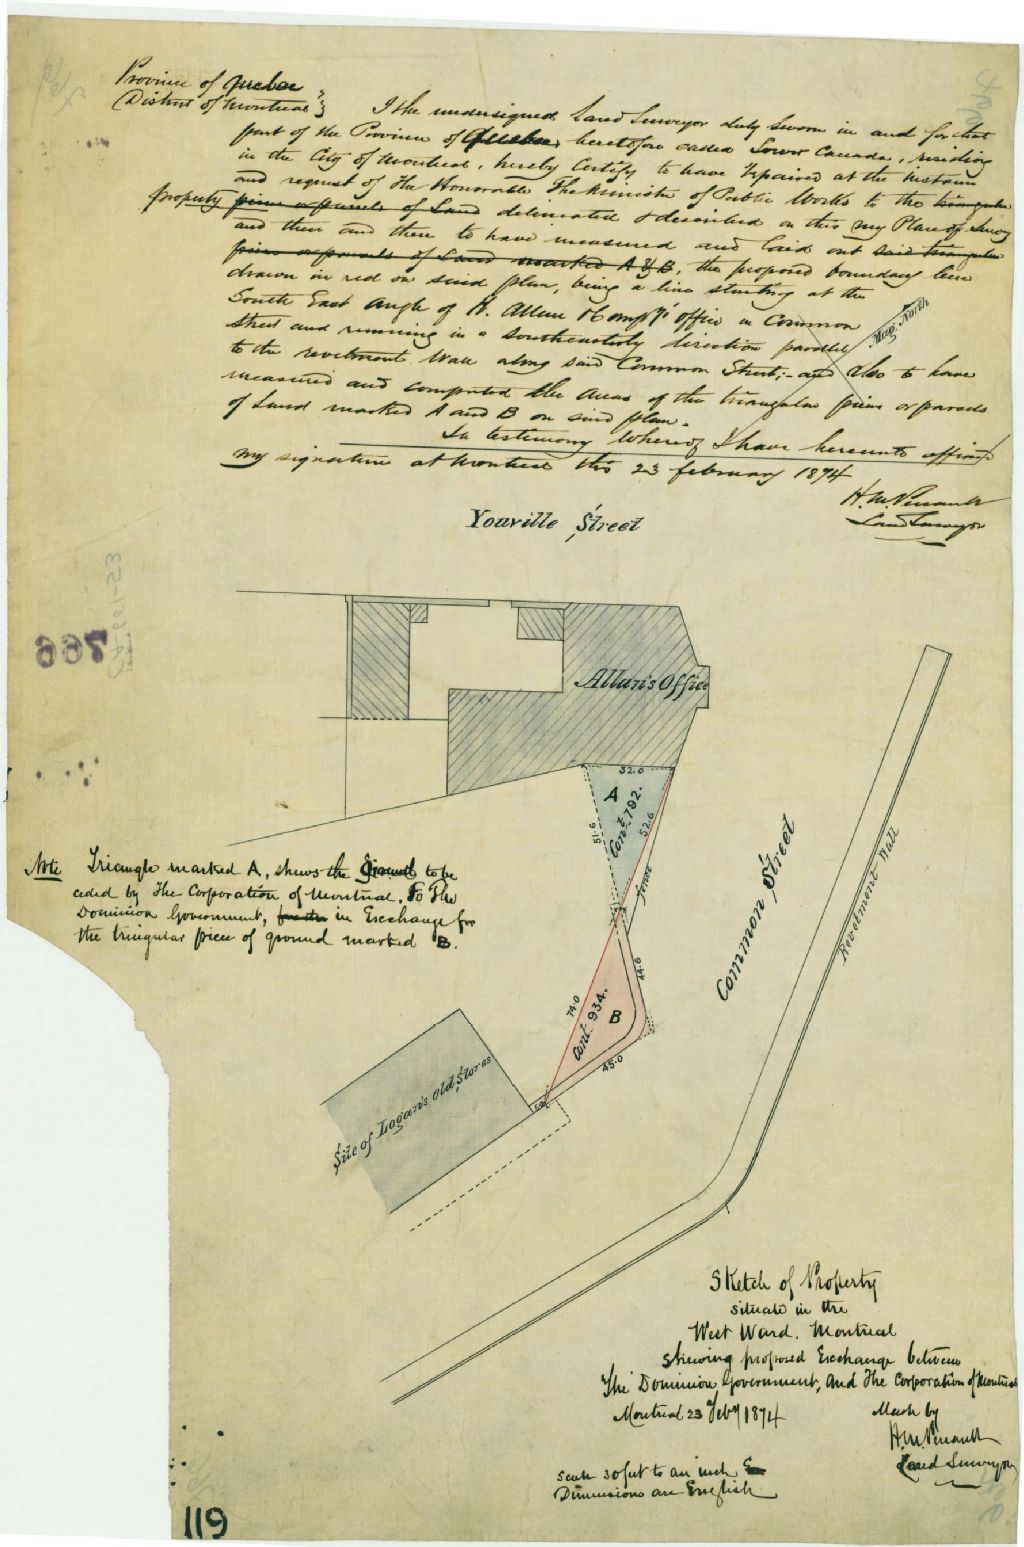 Province of Quebec
District of Montreal } I the undersigned Land Surveyor duly sworn in and for that
part of the Province of Quebec, heretofore called Lower Canada, residing
in the City of Montreal, hereby Certify to have repaired at the instance
and request of The Honorable The Minister of Public Works to the triangular
property piece or parcels of Land delineated & described on this my Plan of Survey
and then and there to have measured and laid out said triangular
piece or parcels of Land marked A & B, the proposed boundary line
drawn in red on said plan, being a line starting at the
South East Angle of H. Allan & Comp'y's office in Common
Street and running in a southeasterly direction parallel
to the revetment Wall along said Common Street;- and also to have
measured and computed the areas of the triangular piece or parcels
of Land marked A and B on said plan.
In testimony Whereof I have hereunto affixed
my signature at Montreal this 23 february 1874
H. M. Perrault
Land Surveyor
Mag. North
Youville Street
Allan's Office
32.0
A
Cont. 792.
51.6
52.6
fence
Common Street
Revetment Wall
766
Note Triangle marked A, shews the Ground to be
ceded by The Corporation of Montreal, To The
Dominion Government, in Exchange for
the triangular piece of ground marked B.
74.0
44.6
Cont. 934.
B
45.0
Site of Logan's Old Stores
Sketch of Property
situate in the
West Ward. Montreal
Shewing proposed Exchange between
The Dominion Government, and The Corporation of Montreal
Montreal 23 Feby 1874
Made by
H. M. Perrault
Land Surveyor
Scale 30 feet to an inch &
Dimensions are English
119